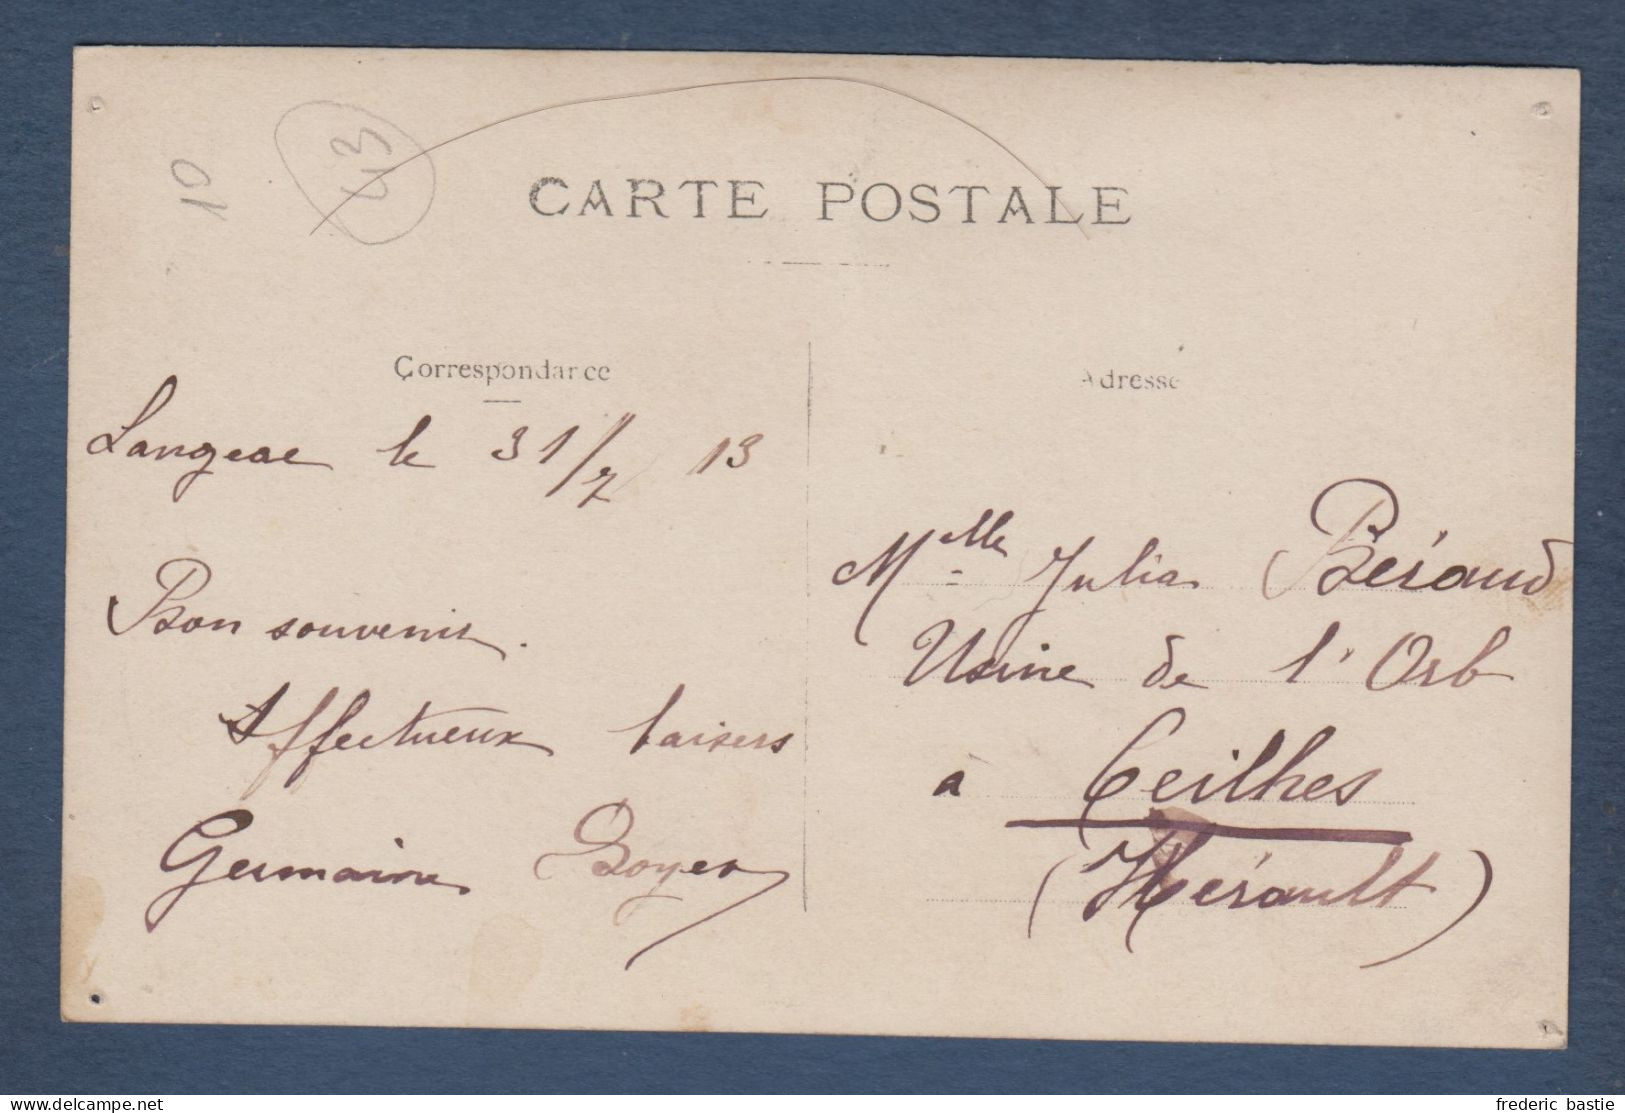 10
43
CARTE POSTALE
Correspondance
Langeac le 31/7 13
Bon souvenir.
Affectueux baisers
Germaine Boyer
Adresse
Melle Julia Béraud
Usine de l'Orb
à Ceilhes
(Hérault)
www.delcampe.net
frederic bastie